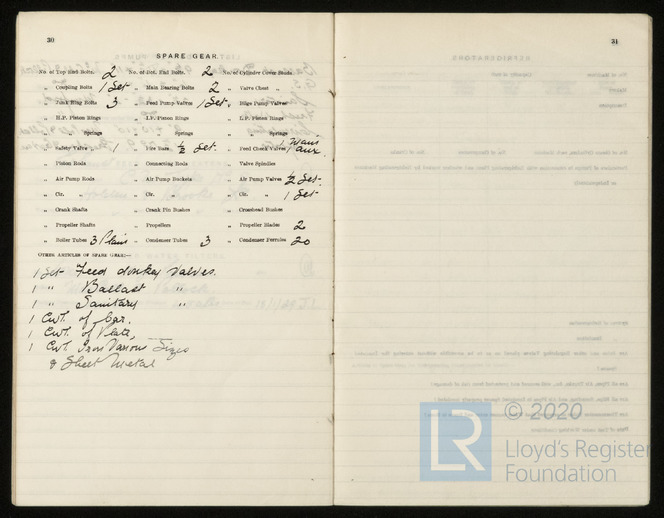 30
SPARE GEAR.
No. of Top End Bolts. 2 No. of Bot. End Bolts. 2 No. of Cylinder Cover Studs
„ Coupling Bolts 1 Set „ Main Bearing Bolts 2 „ Valve Chest „
„ Junk Ring Bolts 3 „ Feed Pump Valves 1 Set „ Bilge Pump Valves
„ H.P. Piston Rings „ I.P. Piston Rings „ L.P. Piston Rings
„ „ Springs „ „ Springs „ „ Springs
„ Safety Valve 1 „ Fire Bars ½ Set. „ Feed Check Valves 1 Main 1 aux
„ Piston Rods „ Connecting Rods „ Valve Spindles
„ Air Pump Rods „ Air Pump Buckets „ Air Pump Valves ½ Set.
„ Cir. „ „ Cir. „ „ Cir. „ 1 Set
„ Crank Shafts „ Crank Pin Bushes „ Crosshead Bushes
„ Propeller Shafts „ Propellers „ Propeller Blades 2
„ Boiler Tubes 3 Plain „ Condenser Tubes 3 „ Condenser Ferrules 20
OTHER ARTICLES OF SPARE GEAR:—
1 Set Feed donkey Valves.
1 „ Ballast „
1 „ Sanitary „
1 Cwt. of Bar.
1 Cwt. of Plate,
1 Cwt Iron Various Sizes
& Sheet Metal
31
© 2020
LR
Lloyd's Register
Foundation